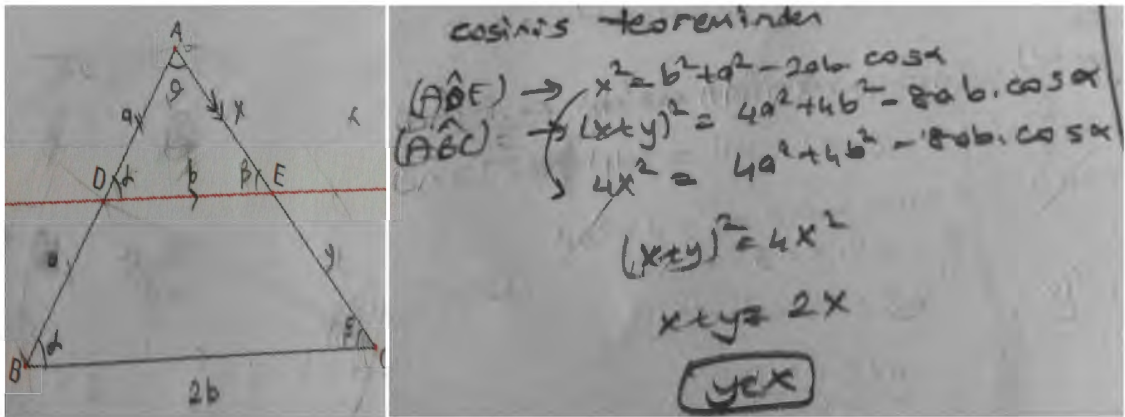 A
a
x
D
α
b
β
E
y
B
α
C
2b
cosinüs teoreminden
(ADE) → x² = b² + a² - 2ab. cosα
(ABC) → (x+y)² = 4a² + 4b² - 8ab. cosα
4x² = 4a² + 4b² - 8ab. cosα
(x+y)² = 4x²
x+y = 2x
y=x